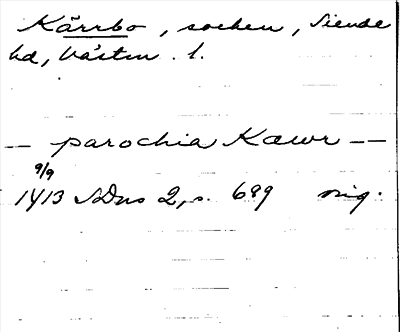 Kärrbo, socken, Siende
hd, Västm. l.
— parochia Kæwr —
9/9
1413 SDns 2, s. 689 orig.